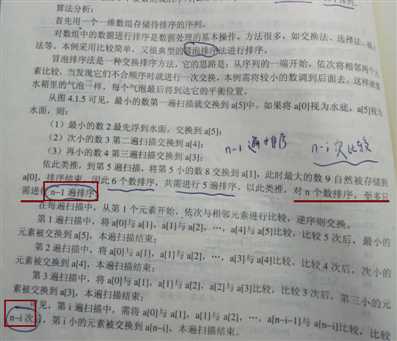 算法分析：
首先用一个一维数组存储待排序的序列。
对数组中的数据进行排序是数据处理的基本操作，方法很多，如交换法、选择法、
法等。本例采用比较简单、又很典型的冒泡排序法进行排序。
冒泡排序法是一种交换排序方法，它的思路是：从序列的一端开始，依次将相邻两个
素比较，当发现它们不合顺序时就进行一次交换。本例需将较小的数调到后面去。这样就
水箱里的气泡一样，每个气泡最后得到达它的平衡位置。
从图 4.1.5 可见，最小的数第一遍扫描就交换到 a[5]中。如果将 a[0]视为水底，a[5]视为
水面，则：
（1）最小的数 2 最先浮到水面，交换到 a[5]；
（2）次小的数 3 第二遍扫描交换到 a[4]；
（3）再小的数 4 第三遍扫描交换到 a[3]；
n-1 遍排序
n-i 次比较
依此类推，到第 5 遍扫描，将第 5 小的数 8 交换到 a[1]，此时最大的数 9 自然被存储到
a[0]，排序结束。因此 6 个数排序，共需进行 5 遍排序，以此类推，对 n 个数排序，至多只
需进行 n−1 遍排序
在每遍扫描中，从第 1 个元素开始，依次与相邻元素进行比较，逆序则交换。
第 1 遍扫描中，将 a[0]与 a[1]，a[1]与 a[2]，…，a[4]与 a[5]比较，比较 5 次后，最小的
元素被交换到 a[5]，本遍扫描结束；
第 2 遍扫描中，将 a[0]与 a[1]，a[1]与 a[2]，…，a[3]与 a[4]比较，比较 4 次后，次小的
元素被交换到 a[4]，本遍扫描结束；
第 3 遍扫描中，将 a[0]与 a[1]，a[1]与 a[2]，a[2]与 a[3]比较，比较 3 次后，第三小的元
素被交换到 a[3]，本遍扫描结束；
见，第 i 遍扫描中，需将 a[0]与 a[1]，a[1]与 a[2]，…，a[n−i−1]与 a[n−i]比较，比较
n−i 次，第 i 小的元素被交换到 a[n−i]，本遍扫描结束。